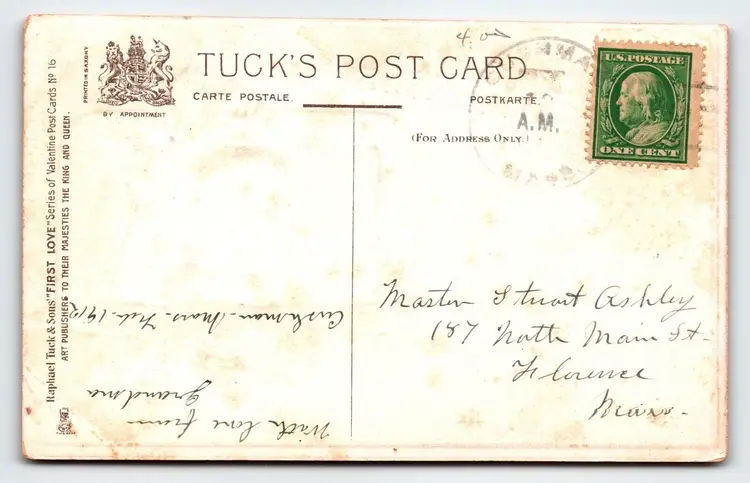 4.00
TUCK'S POST CARD
CARTE POSTALE.
POSTKARTE.
(FOR ADDRESS ONLY.)
BY APPOINTMENT
PRINTED IN SAXONY
Raphael Tuck & Sons' "FIRST LOVE" Series of Valentine Post Cards Nº 16
ART PUBLISHERS TO THEIR MAJESTIES THE KING AND QUEEN.
A.M.
MASS.
U.S. POSTAGE
ONE CENT
With love from
Grandma
Cushman. Mass. Feb. 1912
Master Stuart Ashley
187 North Main St.
Florence
Mass.